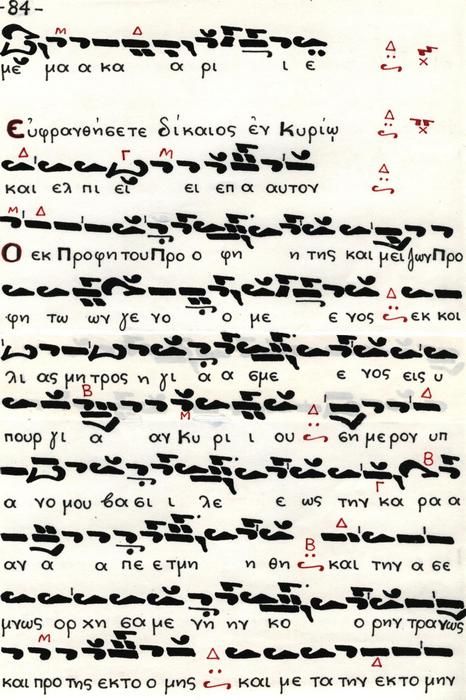 -84-
με μα α κα α ρι ι ε
Εὐφρανθήσετε δίκαιος ἐν Κυρίῳ
και ελ πι ει ει επ α αυτον
Ο εκ Προφη του Προ ο φη η της και μει ζων Προ
φη τω ων γε νο ο με ε νος εκ κοι
λι ας μη τρος η γι α α σμε ε νος εις υ
πουρ γι α αν Κυ ρι ι ου ση με ρον υπ
α νο μου βα σι ι λε ε ως την κα ρα α
αν α α πε ε τμη η θη και την α σε
μνως ορ χη σα με νη ην κο ο ρην τρα νως
και προ της εκ το ο μης και με τα την εκ το μην